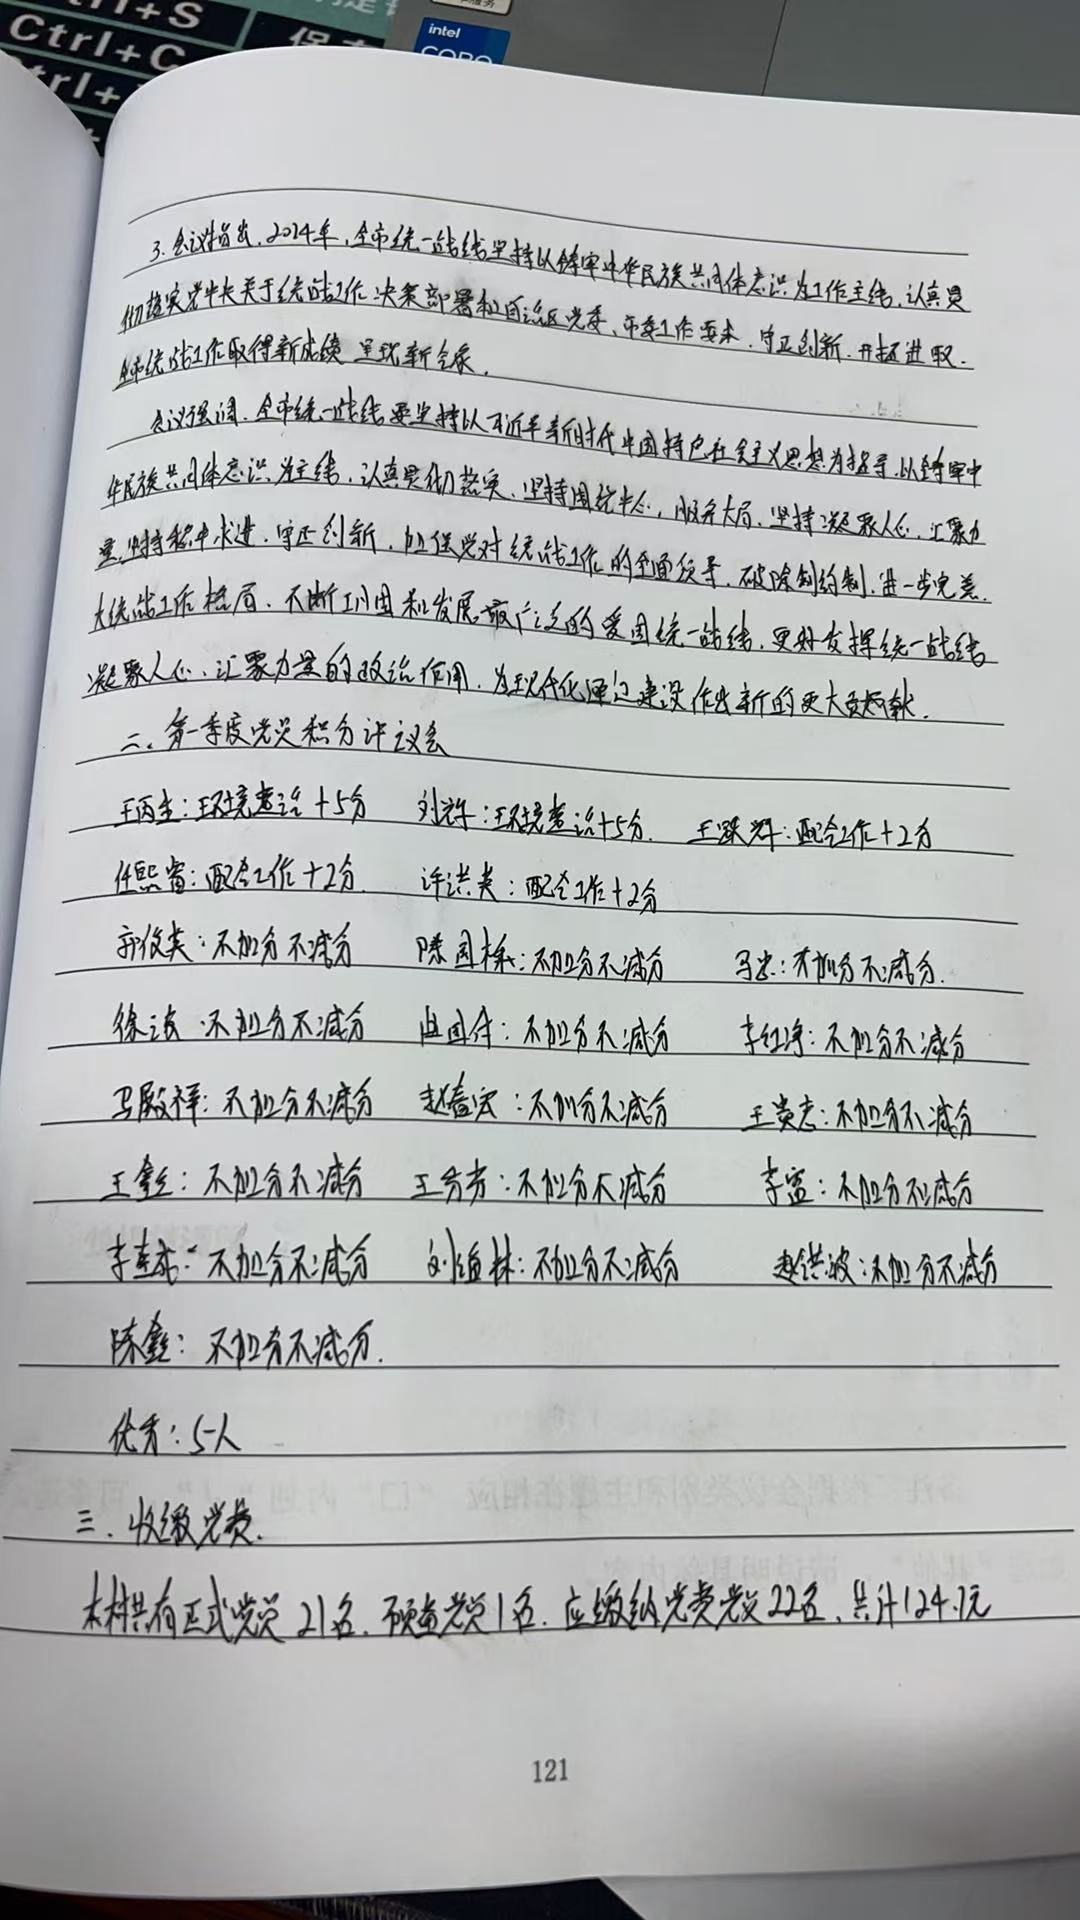 Ctrl+S
保存
Ctrl+C
intel
CORE
服务
3.会议指出,2024年,全市统一战线坚持以铸牢中华民族共同体意识为工作主线,认真贯
彻落实党中央关于统战工作决策部署和自治区党委、市委工作要求,守正创新,开拓进取,
全市统战工作取得新成绩 呈现新气象.
会议强调,全市统一战线要坚持以习近平新时代中国特色社会主义思想为指导,以铸牢中
华民族共同体意识为主线,认真贯彻落实,坚持围绕中心,服务大局,坚持凝聚人心,汇聚力
量,坚持稳中求进,守正创新,加强党对统战工作的全面领导,破除制约制,进一步完善
大统战工作格局,不断巩固和发展最广泛的爱国统一战线,更好发挥统一战线
凝聚人心、汇聚力量的政治作用,为现代化通辽建设作出新的更大贡献.
二、第一季度党员积分评议会
王丙生:环境整治+5分 刘辉:环境整治+5分. 王跃辉:配合工作+2分
任熙富:配合工作+2分. 许洪英:配合工作+2分
郭俊英:不加分不减分 陈国栋:不加分不减分 马忠:不加分不减分.
徐波:不加分不减分 国伟:不加分不减分 李红净:不加分不减分
马殿祥:不加分不减分 赵春宏:不加分不减分 王贵志:不加分不减分
王鑫:不加分不减分 王秀芳:不加分不减分 李富:不加分不减分
李:不加分不减分 刘维林:不加分不减分 赵洪波:不加分不减分
陈鑫:不加分不减分.
优秀:5人
三.收缴党费.
本村共有正式党员21名,预备党员1名,应缴纳党费党员22名,共计124.1元
121